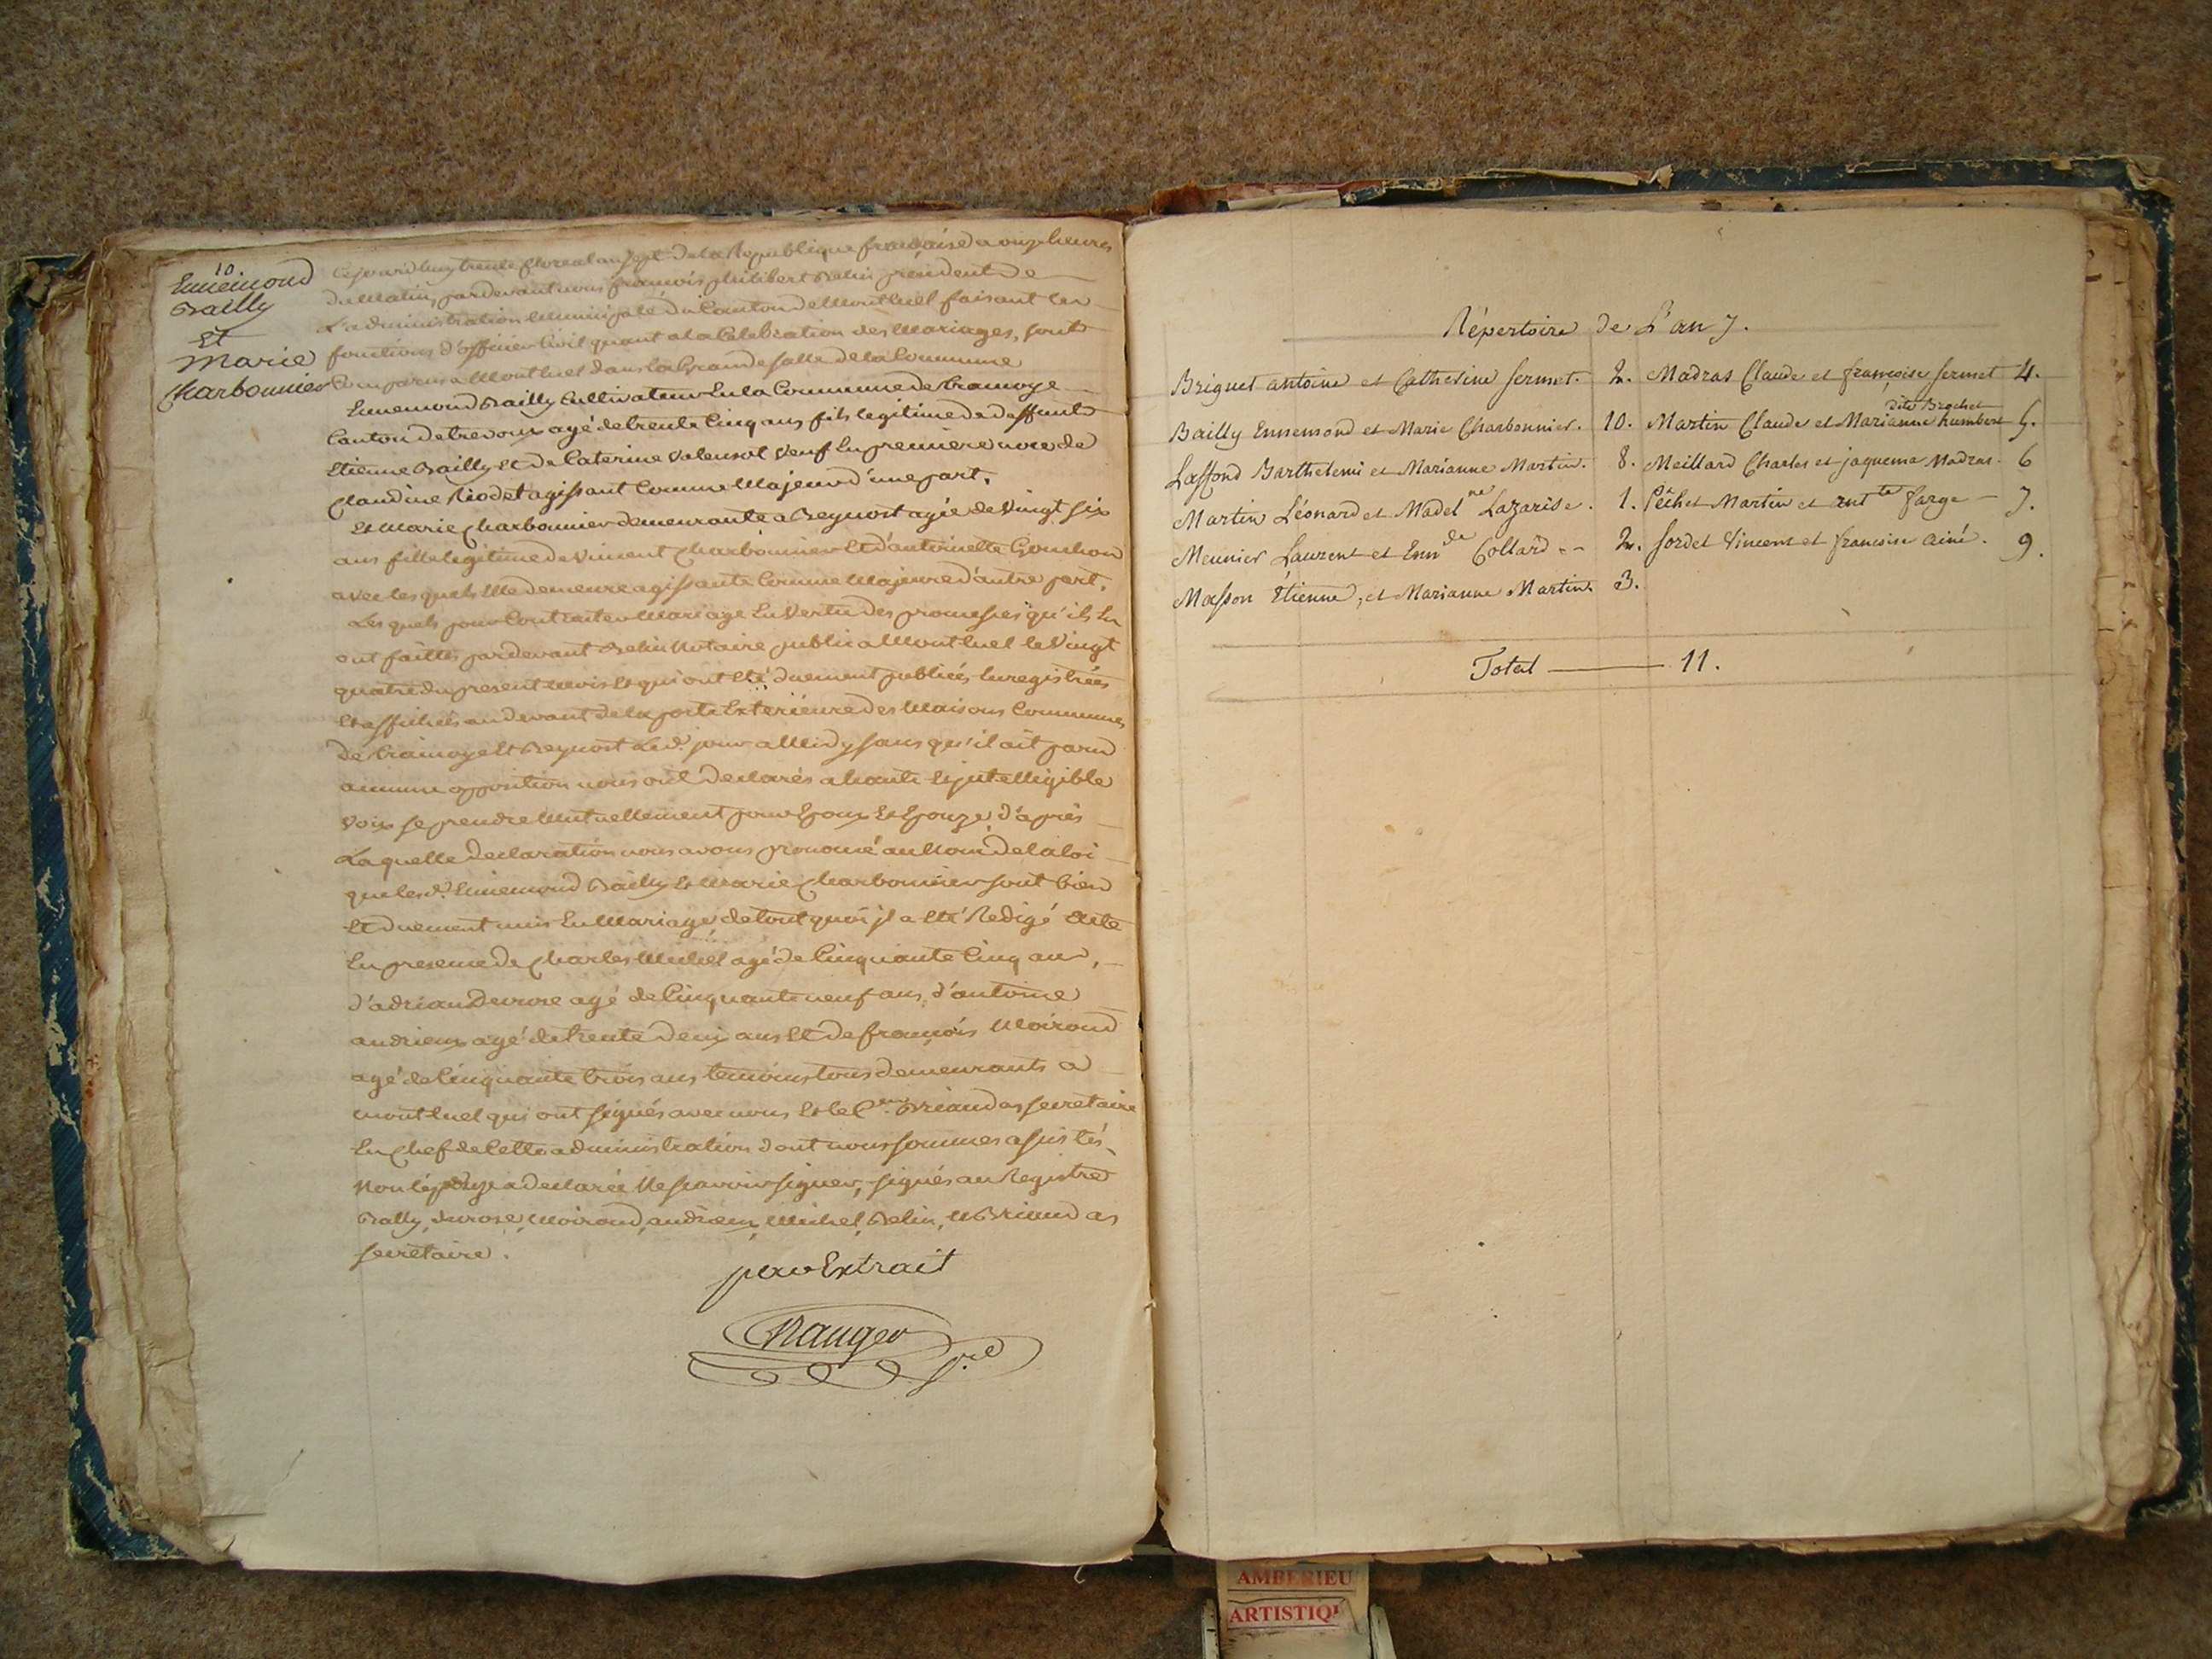 10.
Ennemond
Bailly
Et
Marie
Charbonnier
Cejourd'huy trente floreal an sept de la Republique française a onze heures
du Matin, pardevant nous françois philibert Belin president de
L'administration Municipale du Canton de Montluel faisant les
fonctions d'officier Civil quant a la Celebration des Mariages, sont
Comparus a Montluel dans la Grande salle de la Commune
Ennemond Bailly Cultivateur En la Commune de tramoye
Canton de trevoux agé de trente Cinq ans fils legitime de deffunt
Etienne Bailly Et de Caterine Valensol Veuf En premiere noce de
Claudine Riodet agissant Comme Majeur d'une part.
Et Marie Charbonnier demeurante a Beynost agée de Vingt six
ans fille legitime de Vincent Charbonnier Et d'antoinette
avec les quels Elle demeure agissante Comme Majeure d'autre part.
Les quels pour Contracter Mariage En Vertu des promesses qu'ils En
ont faittes pardevant Belin Notaire public a Montluel le Vingt
quatre du present mois Et qui ont Eté duement publiées Enregistrées
Et affichées au devant de la porte Exterieure des Maisons Communes
de tramoye Et Beynost Led. jour a Midy sans qu'il ait paru
aucune opposition nous ont declarés a haute Et jntelligible
Voix se prendre Mutuellement pour Epoux Et Epouze d'après
Laquelle declaration nous avons prononcé au Nom de la loi
que lesd. Ennemond Bailly Et Marie Charbonnier sont bien
Et duement unis En Mariage de tout quoi jl a Eté Redigé acte
En presence de Charles Michel agé de Cinquante Cinq ans,
d'adrian Derose agé de Cinquante neuf ans, d'antoine
andrieux agé de trente deux ans Et de françois Moiroud
agé de Cinquante trois ans temoins tous demeurants a
montluel qui ont signés avec nous Et le C.en Briandas secretaire
En Chef de Cette administration dont nous sommes assistés,
Non l'épouze a declarée Ne scavoir signer, signés au Registre
Bally, Derose, Moiroud, andrieux, Michel, Belin, & Briandas
secretaire.
pour Extrait
Nauger
s.re
Répertoire de L'an 7.
Briguet antoine et Catherine sermet. 2. Madras Claude et françoise sermet 4.
dite Brochet
Bailly Ennemond et Marie Charbonnier. 10. Martin Claude et Marianne humbert 5.
Laffond Barthelemi et Marianne Martin. 8. Meillard Charles et jaqueme Madras. 6
Martin Léonard et Madel.ne Lazarise. 1. Pêchet Martin et ant.te farge — 7.
Meunier Laurent et Enn.de Collard -- 2. sordet Vincent et françoise ainé. 9.
Masson Etienne, et Marianne Martin. 3.
Total ——— 11.
AMBERIEU
ARTISTIQ